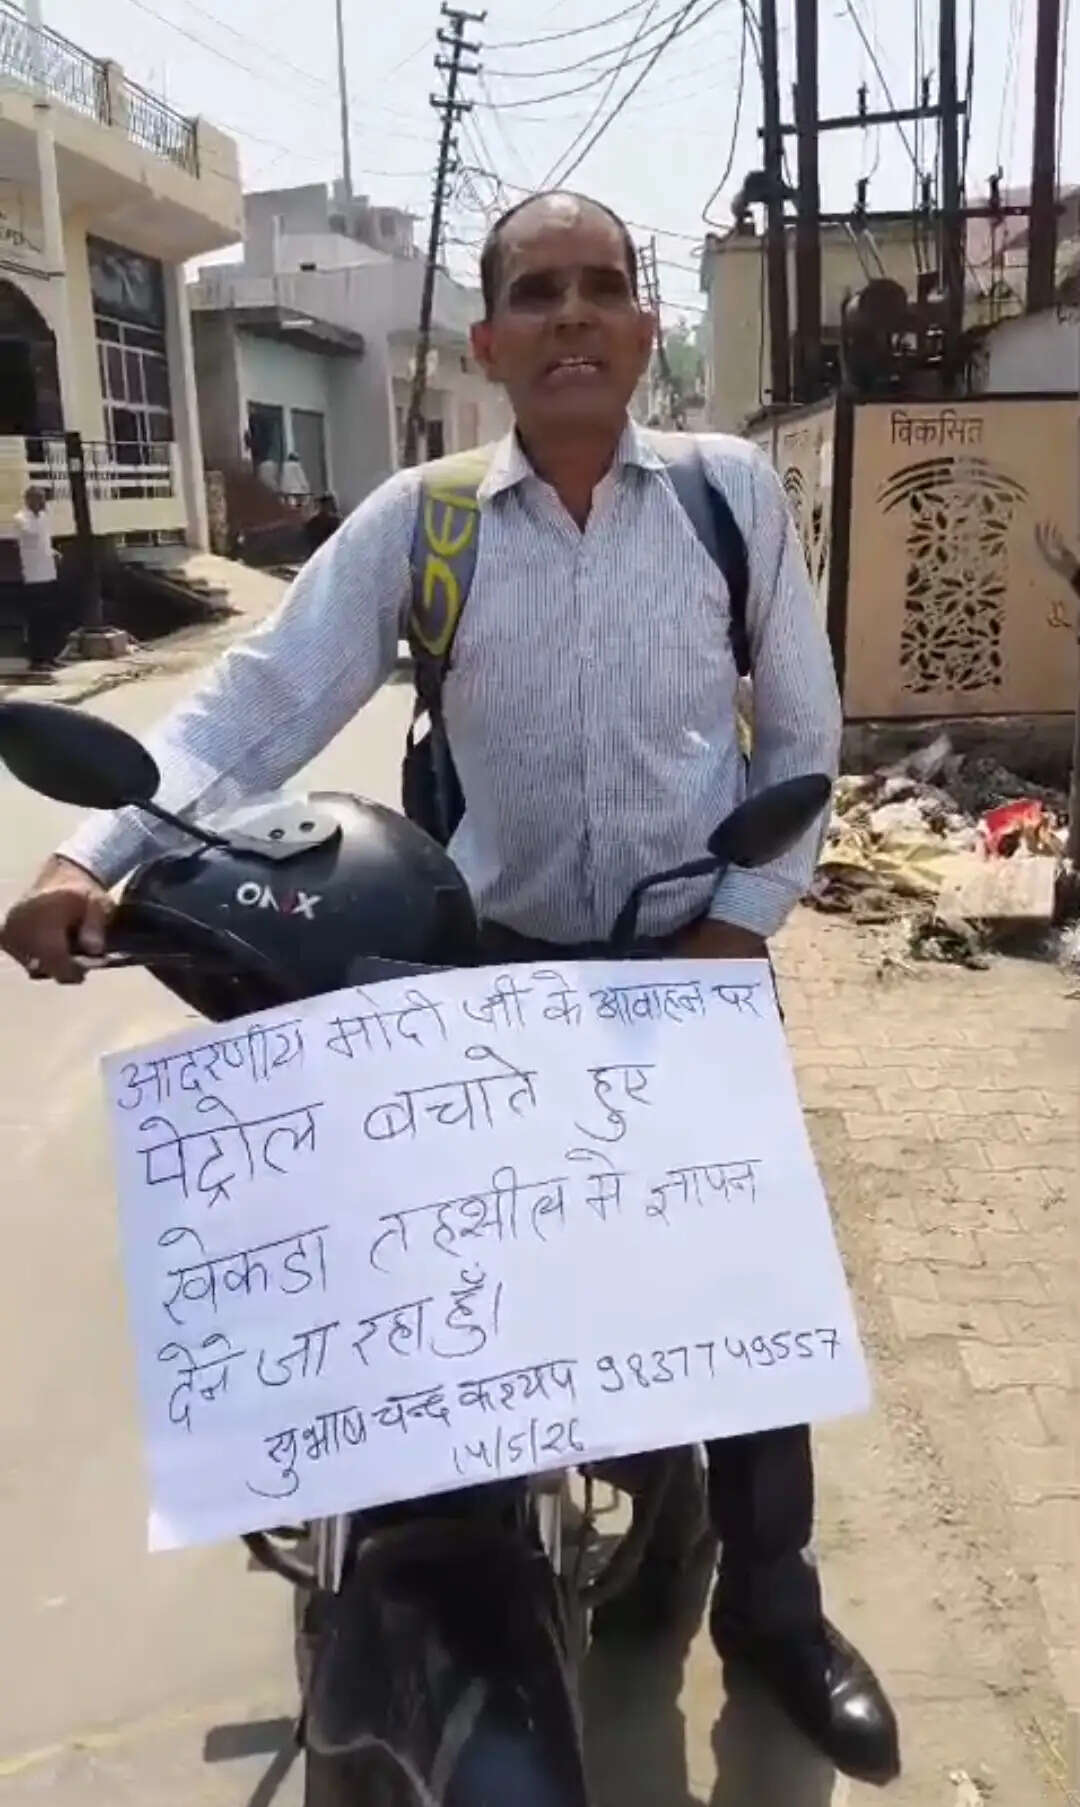 विकसित
GEN
ONIX
आदरणीय मोदी जी के आवाहन पर
पेट्रोल बचाते हुए
खेकडा तहसील मे ज्ञापन
देने जा रहा हूँ।
सुभाष चन्द कश्यप 9837749557
14/5/26